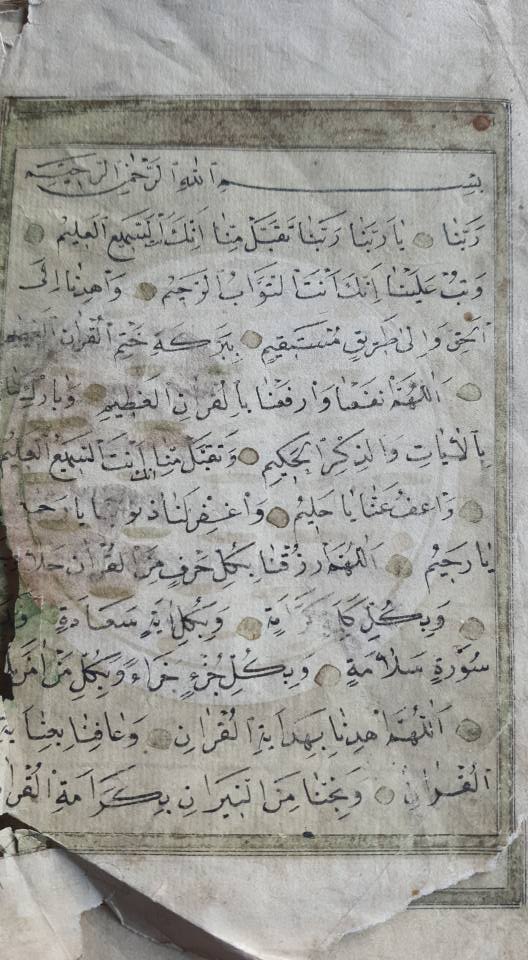 بسم الله الرحمن الرحيم
رَبَّنَا يَا رَبَّنَا رَبَّنَا تَقَبَّلْ مِنَّا اِنَّكَ اَنْتَ السَّمِيعُ الْعَلِيمُ
وَتُبْ عَلَيْنَا اِنَّكَ اَنْتَ التَّوَّابُ الرَّحِيمُ وَاهْدِنَا اِلَى
الْحَقِّ وَاِلَى طَرِيقٍ مُسْتَقِيمٍ بِبَرَكَةِ خَتْمِ الْقُرْاٰنِ
اَللّٰهُمَّ انْفَعْنَا وَارْفَعْنَا بِالْقُرْاٰنِ الْعَظِيمِ وَبَارِكْ لَنَا
بِالْاٰيَاتِ وَالذِّكْرِ الْحَكِيمِ وَتَقَبَّلْ مِنَّا اِنَّكَ اَنْتَ السَّمِيعُ الْعَلِيمُ
وَاعْفُ عَنَّا يَا حَلِيمُ وَاغْفِرْ لَنَا ذُنُوبَنَا يَا
يَا رَحِيمُ اَللّٰهُمَّ ارْزُقْنَا بِكُلِّ حَرْفٍ مِنَ الْقُرْاٰنِ
وَبِكُلِّ كَرَامَةً وَبِكُلِّ اٰيَةٍ سَعَادَةً
سُورَةٍ سَلَامَةٍ وَبِكُلِّ جُزْءٍ جَزَاءً وَبِكُلِّ
اَللّٰهُمَّ اهْدِنَا بِهِدَايَةِ الْقُرْاٰنِ وَعَافِنَا بِعِنَايَةِ
الْقُرْاٰنِ وَنَجِّنَا مِنَ النِّيرَانِ بِكَرَامَةِ الْقُرْاٰنِ